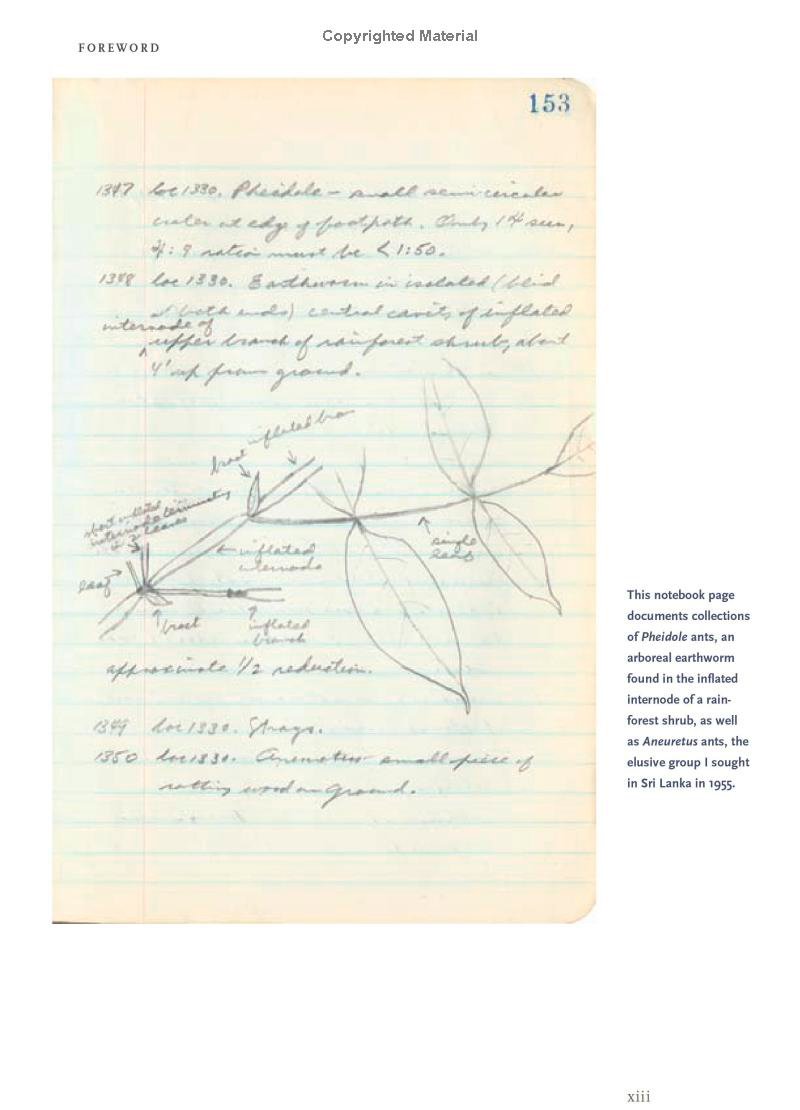 Copyrighted Material
FOREWORD
153
1347 loc 1330. Pheidole – small semicircular
crater at edge of footpath. Only 1 ♃ seen,
♃: ♀ ratio must be < 1:50.
1348 loc 1330. Earthworm in isolated (blind
at both ends) central cavity of inflated
internode of
^ upper branch of rainforest shrub, about
4' up from ground.
bract inflated
short inflated
internode terminating
in 2 leaves
leaf
← inflated
internode
single
leaf
bract
inflated
branch
approximate 1/2 reduction.
1349 loc 1330. Strays.
1350 loc 1330. small piece of
rotting wood on ground.
This notebook page
documents collections
of Pheidole ants, an
arboreal earthworm
found in the inflated
internode of a rain-
forest shrub, as well
as Aneuretus ants, the
elusive group I sought
in Sri Lanka in 1955.
xiii